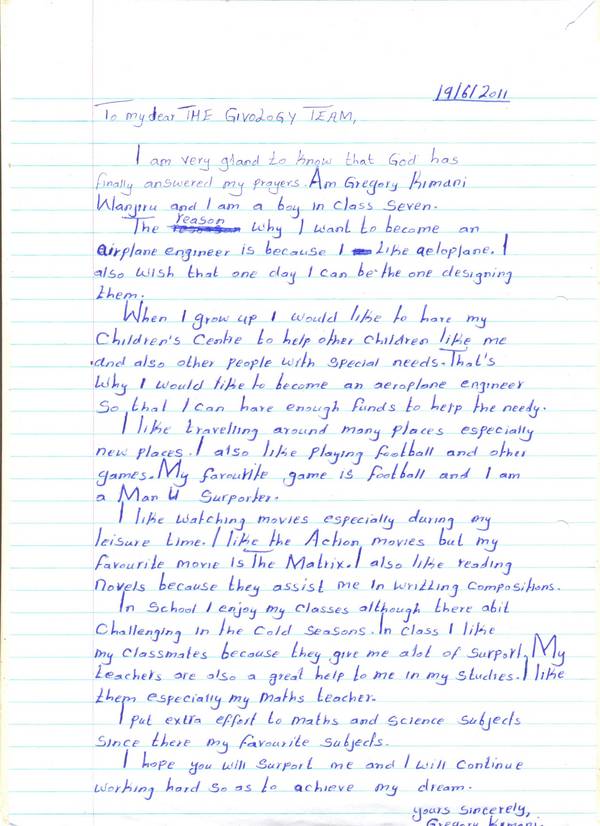 19/6/2011
To my dear THE GIVOLOGY TEAM,
I am very gland to know that God has
finally answered my prayers. Am Gregory Kimani
Wanjiru and I am a boy in class seven.
The reason why I want to become an
airplane engineer is because I like aeloplane. I
also wish that one day I can be the one designing
them.
When I grow up I would like to have my
Children's Centre to help other children like me
and also other people with special needs. That's
why I would like to become an aeroplane engineer
so that I can have enough funds to help the needy.
I like travelling around many places especially
new places. I also like playing football and other
games. My favourite game is football and I am
a Man U surporter.
I like watching movies especially during my
leisure time. I like the Action movies but my
favourite movie is The Matrix. I also like reading
novels because they assist me in writting compositions.
In school I enjoy my classes although there abit
challenging in the cold seasons. In class I like
my classmates because they give me alot of surport. My
teachers are also a great help to me in my studies. I like
them especially my maths teacher.
I put extra effort to maths and science subjects
since there my favourite subjects.
I hope you will surport me and I will continue
working hard so as to achieve my dream.
yours sincerely,
Gregory Kimani.